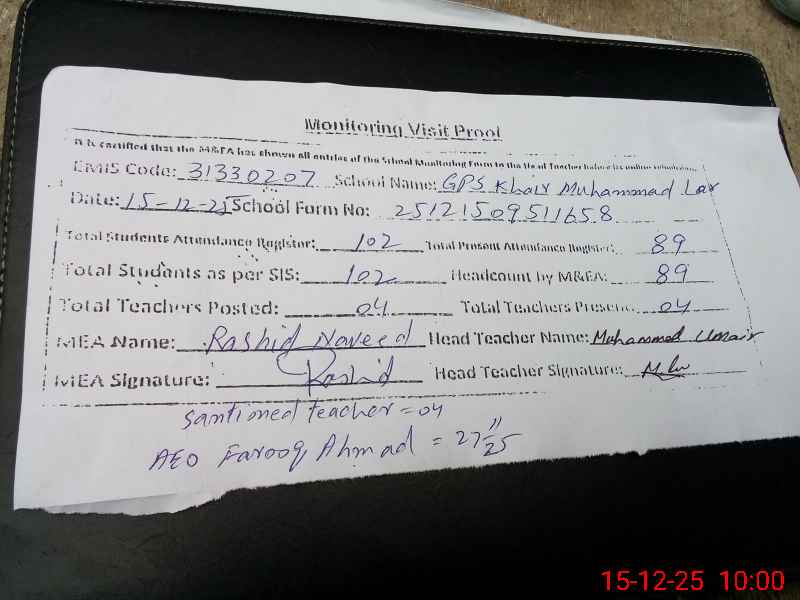 Monitoring Visit Proof
It is certified that the M&EA has shown all entries of the School Monitoring Form to the Head Teacher before its online submission.
EMIS Code: 31330207 School Name: GPS Khair Muhammad Lar
Date: 15-12-25 School Form No: 25121509511658
Total Students Attendance Register: 102 Total Present Attendance Register: 89
Total Students as per SIS: 102 Headcount by M&EA: 89
Total Teachers Posted: 04 Total Teachers Present: 04
MEA Name: Rashid Naveed Head Teacher Name: Muhammad Umair
MEA Signature: Rashid Head Teacher Signature:
Santioned teacher = 04
AEO Farooq Ahmad = 27/11/25
15-12-25 10:00